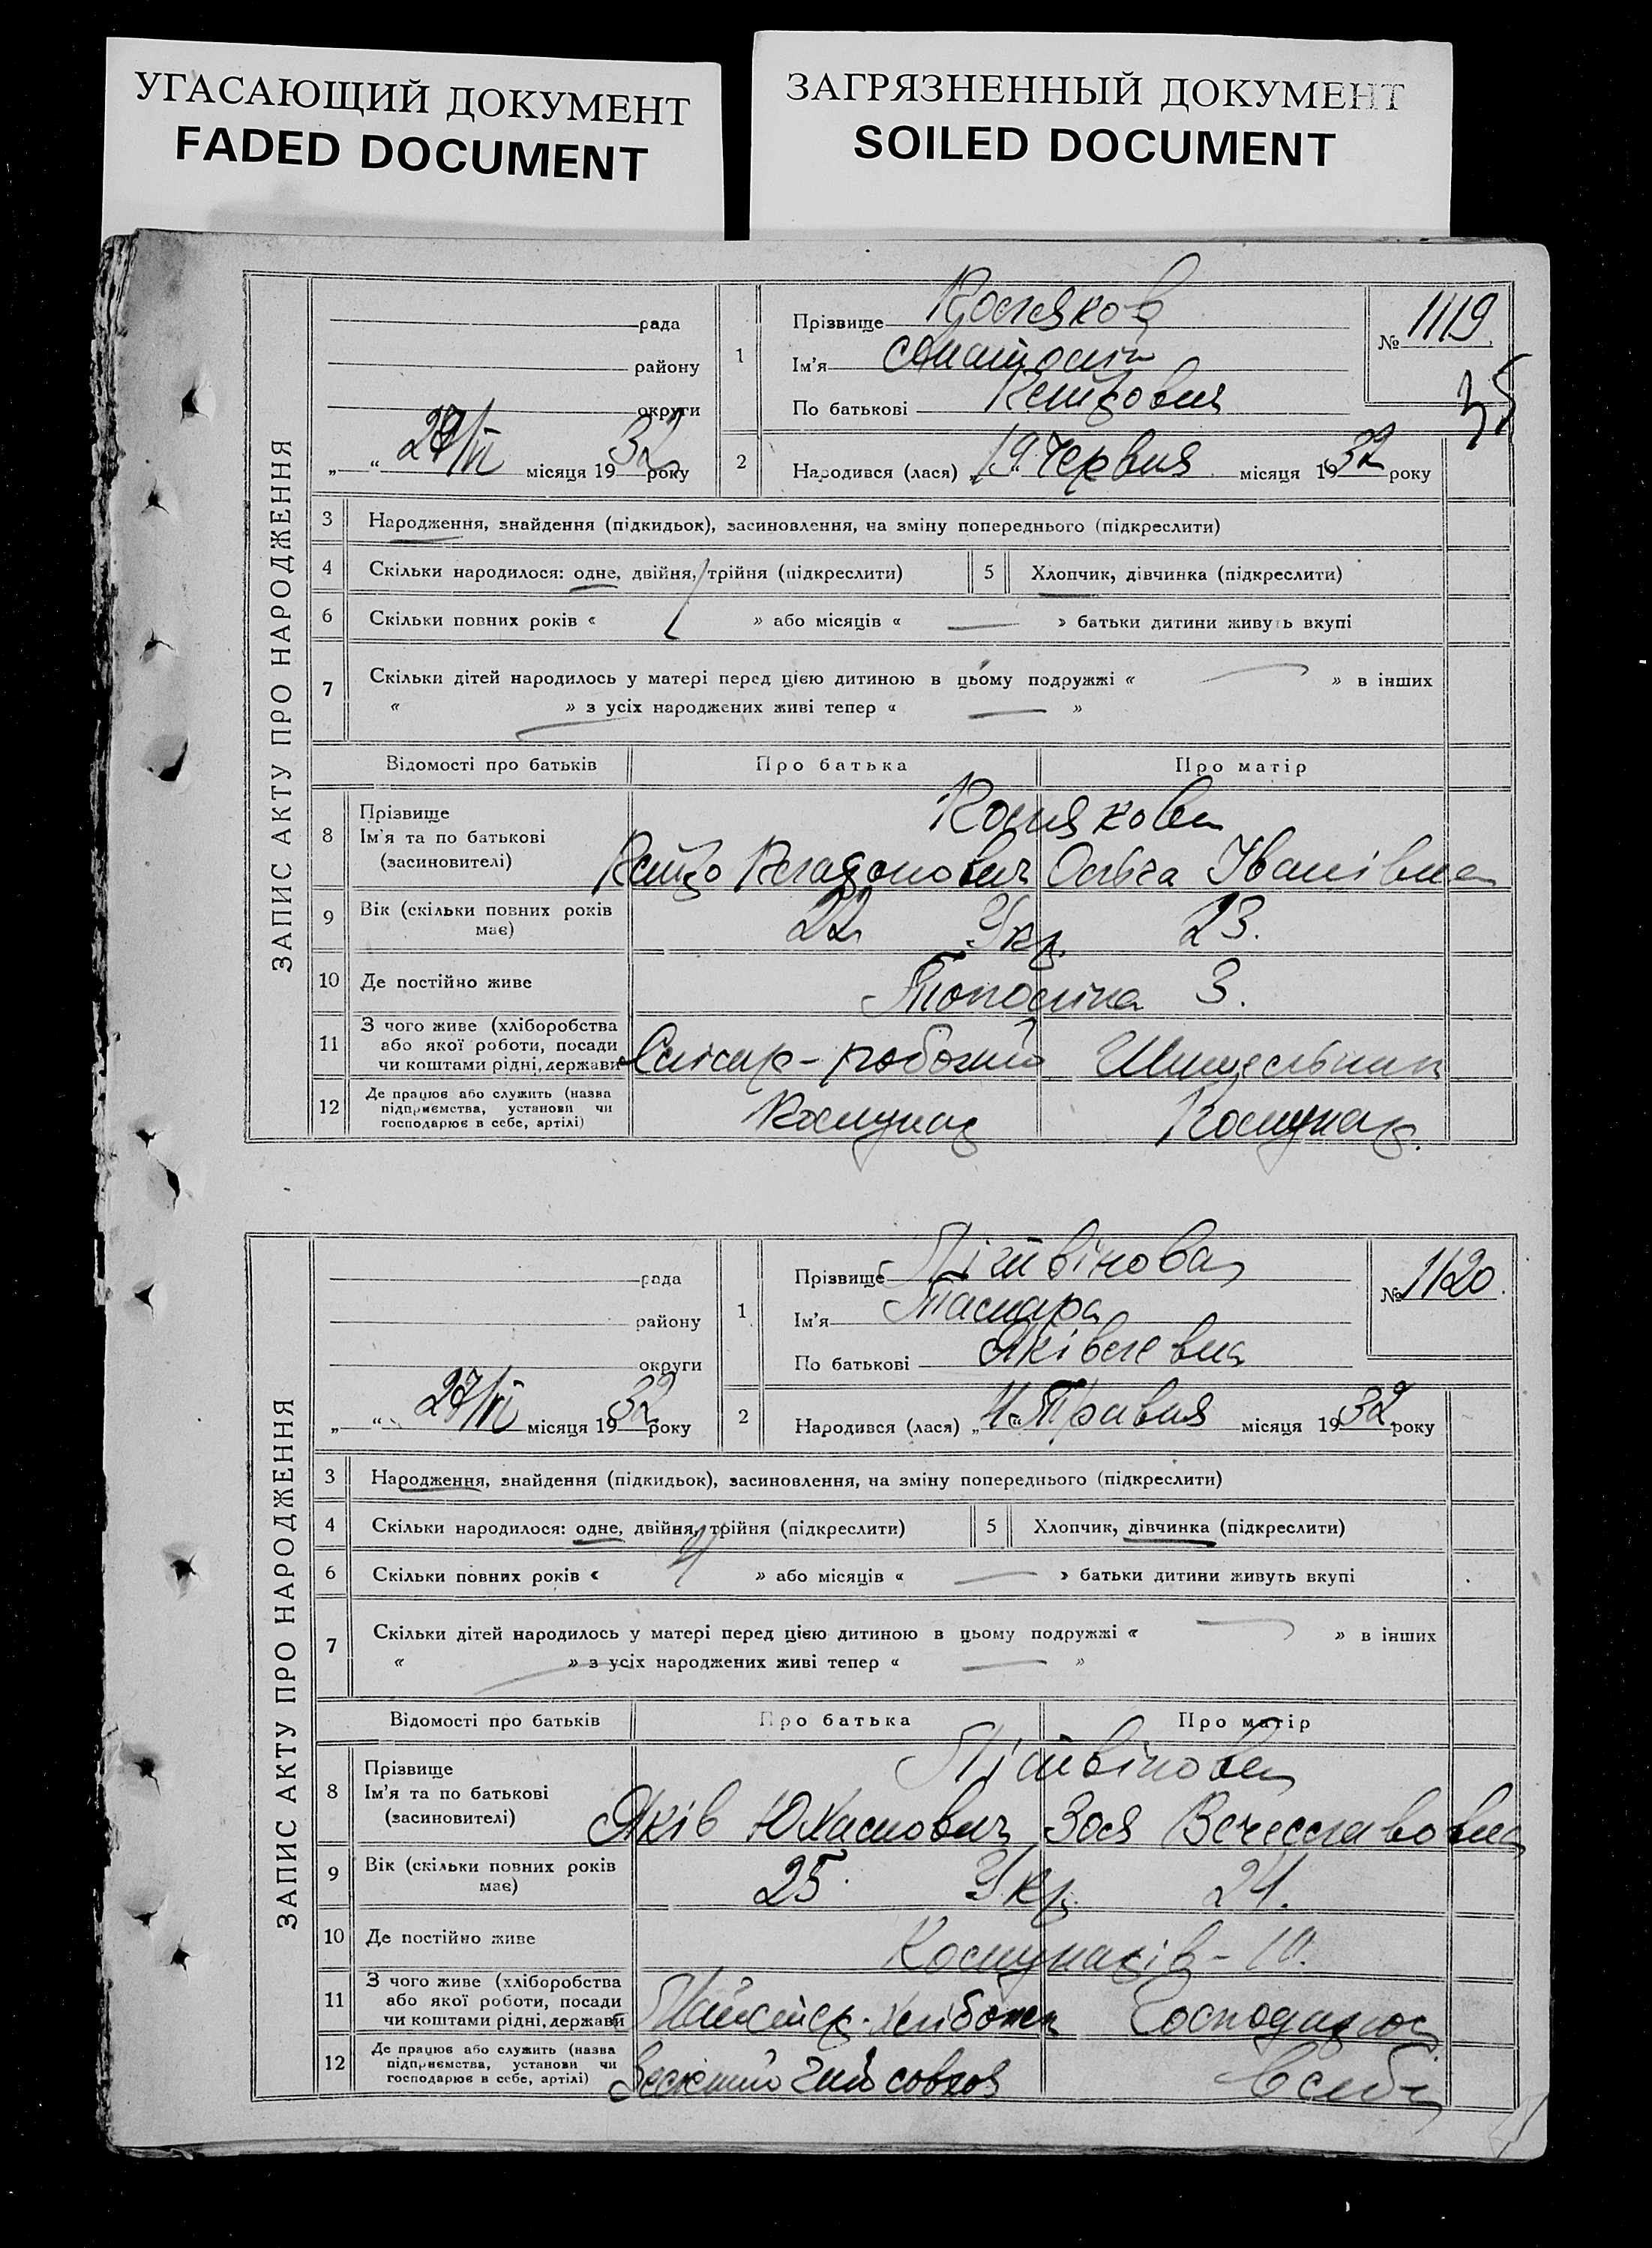 УГАСАЮЩИЙ ДОКУМЕНТ
FADED DOCUMENT
ЗАГРЯЗНЕННЫЙ ДОКУМЕНТ
SOILED DOCUMENT
ЗАПИС АКТУ ПРО НАРОДЖЕННЯ
рада
району
округи
„ “ 27/VI місяця 1932 року
1
Прізвище
Ім'я Анатолій
По батькові Петрович
№ 1119
35
2
Народився (лася) „19“ Червня місяця 1932 року
3 Народження, знайдення (підкидьок), засиновлення, на зміну попереднього (підкреслити)
4 Скільки народилося: одне, двійня, трійня (підкреслити)
5 Хлопчик, дівчинка (підкреслити)
6 Скільки повних років « » або місяців « — » батьки дитини живуть вкупі
7 Скільки дітей народилось у матері перед цією дитиною в цьому подружжі « — » в інших
« — » з усіх народжених живі тепер « — »
Відомості про батьків Про батька Про матір
8 Прізвище
Ім'я та по батькові
(засиновителі)
Петро Ольга Іванівна
9 Вік (скільки повних років має) 22 Укр. 23.
10 Де постійно живе 3.
11 З чого живе (хліборобства або якої роботи, посади чи коштами рідні, держави Слюсар-
12 Де працює або служить (назва підприємства, установи чи господарює в себе, артілі)
ЗАПИС АКТУ ПРО НАРОДЖЕННЯ
рада
району
округи
„ “ 27/VI місяця 1932 року
1
Прізвище Літвінова
Ім'я Тамара
По батькові Яківлевна
№ 1120.
2
Народився (лася) Травня місяця 1932 року
3 Народження, знайдення (підкидьок), засиновлення, на зміну попереднього (підкреслити)
4 Скільки народилося: одне, двійня, трійня (підкреслити)
5 Хлопчик, дівчинка (підкреслити)
6 Скільки повних років « » або місяців « — » батьки дитини живуть вкупі
7 Скільки дітей народилось у матері перед цією дитиною в цьому подружжі « — » в інших
« — » з усіх народжених живі тепер « — »
Відомості про батьків Про батька Про матір
8 Прізвище
Ім'я та по батькові
(засиновителі)
Літвінова
Яків Зоя
9 Вік (скільки повних років має) 25 Укр. 21.
10 Де постійно живе
11 З чого живе (хліборобства або якої роботи, посади чи коштами рідні, держави
12 Де працює або служить (назва підприємства, установи чи господарює в себе, артілі) в себе